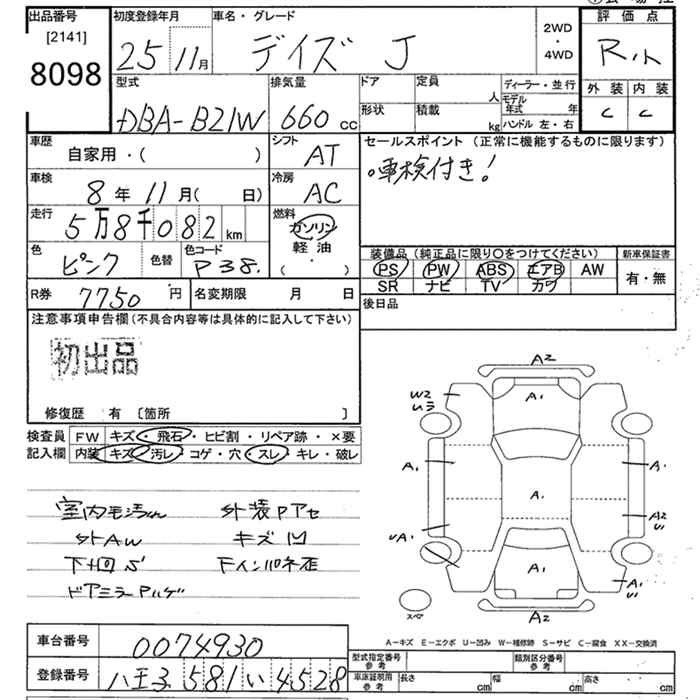 出品番号 初度登録年月 車名・グレード 2WD ・ 4WD 評価点
[2141]
8098 25 11月 デイズ J R
型式 排気量 ドア 定員 人 ディーラー・並行 外装 内装
DBA-B21W 660cc 形状 積載 kg モデル年式 年 C C
ハンドル 左・右
車歴 シフト セールスポイント (正常に機能するものに限ります)
自家用・( ) AT 車検付き!
車検 冷房
8年 11月( 日) AC
走行 燃料
5万8千082km ガソリン
軽油
( ・ )
色 色替 色コード 装備品 (純正品に限り○をつけてください) 新車保証書
ピンク P38. PS PW ABS エアB AW 有・無
SR ナビ TV カワ
R券 7750円 名変期限 月 日 後日品
注意事項申告欄(不具合内容等は具体的に記入して下さい)
初出品
修復歴 有 〔箇所 〕
検査員 FW キズ・飛石・ヒビ割・リペア跡・×要
記入欄 内装 キズ・汚レ・コゲ・穴・スレ・キレ・破レ
外装Pアセ
外AW キズ凹
ドアミラー
A2
W2 A1
A1 A1 A1
A1 A2
A1 A1
U1
スペア A2
A-キズ E-エクボ U-凹み W-補修跡 S-サビ C-腐食 XX-交換済
車台番号 0074930 型式指定番号 参考 類別区分番号 参考
登録番号 八王子 581 い 4528 車庫証明用 参考 長さ cm 幅 cm 高さ cm